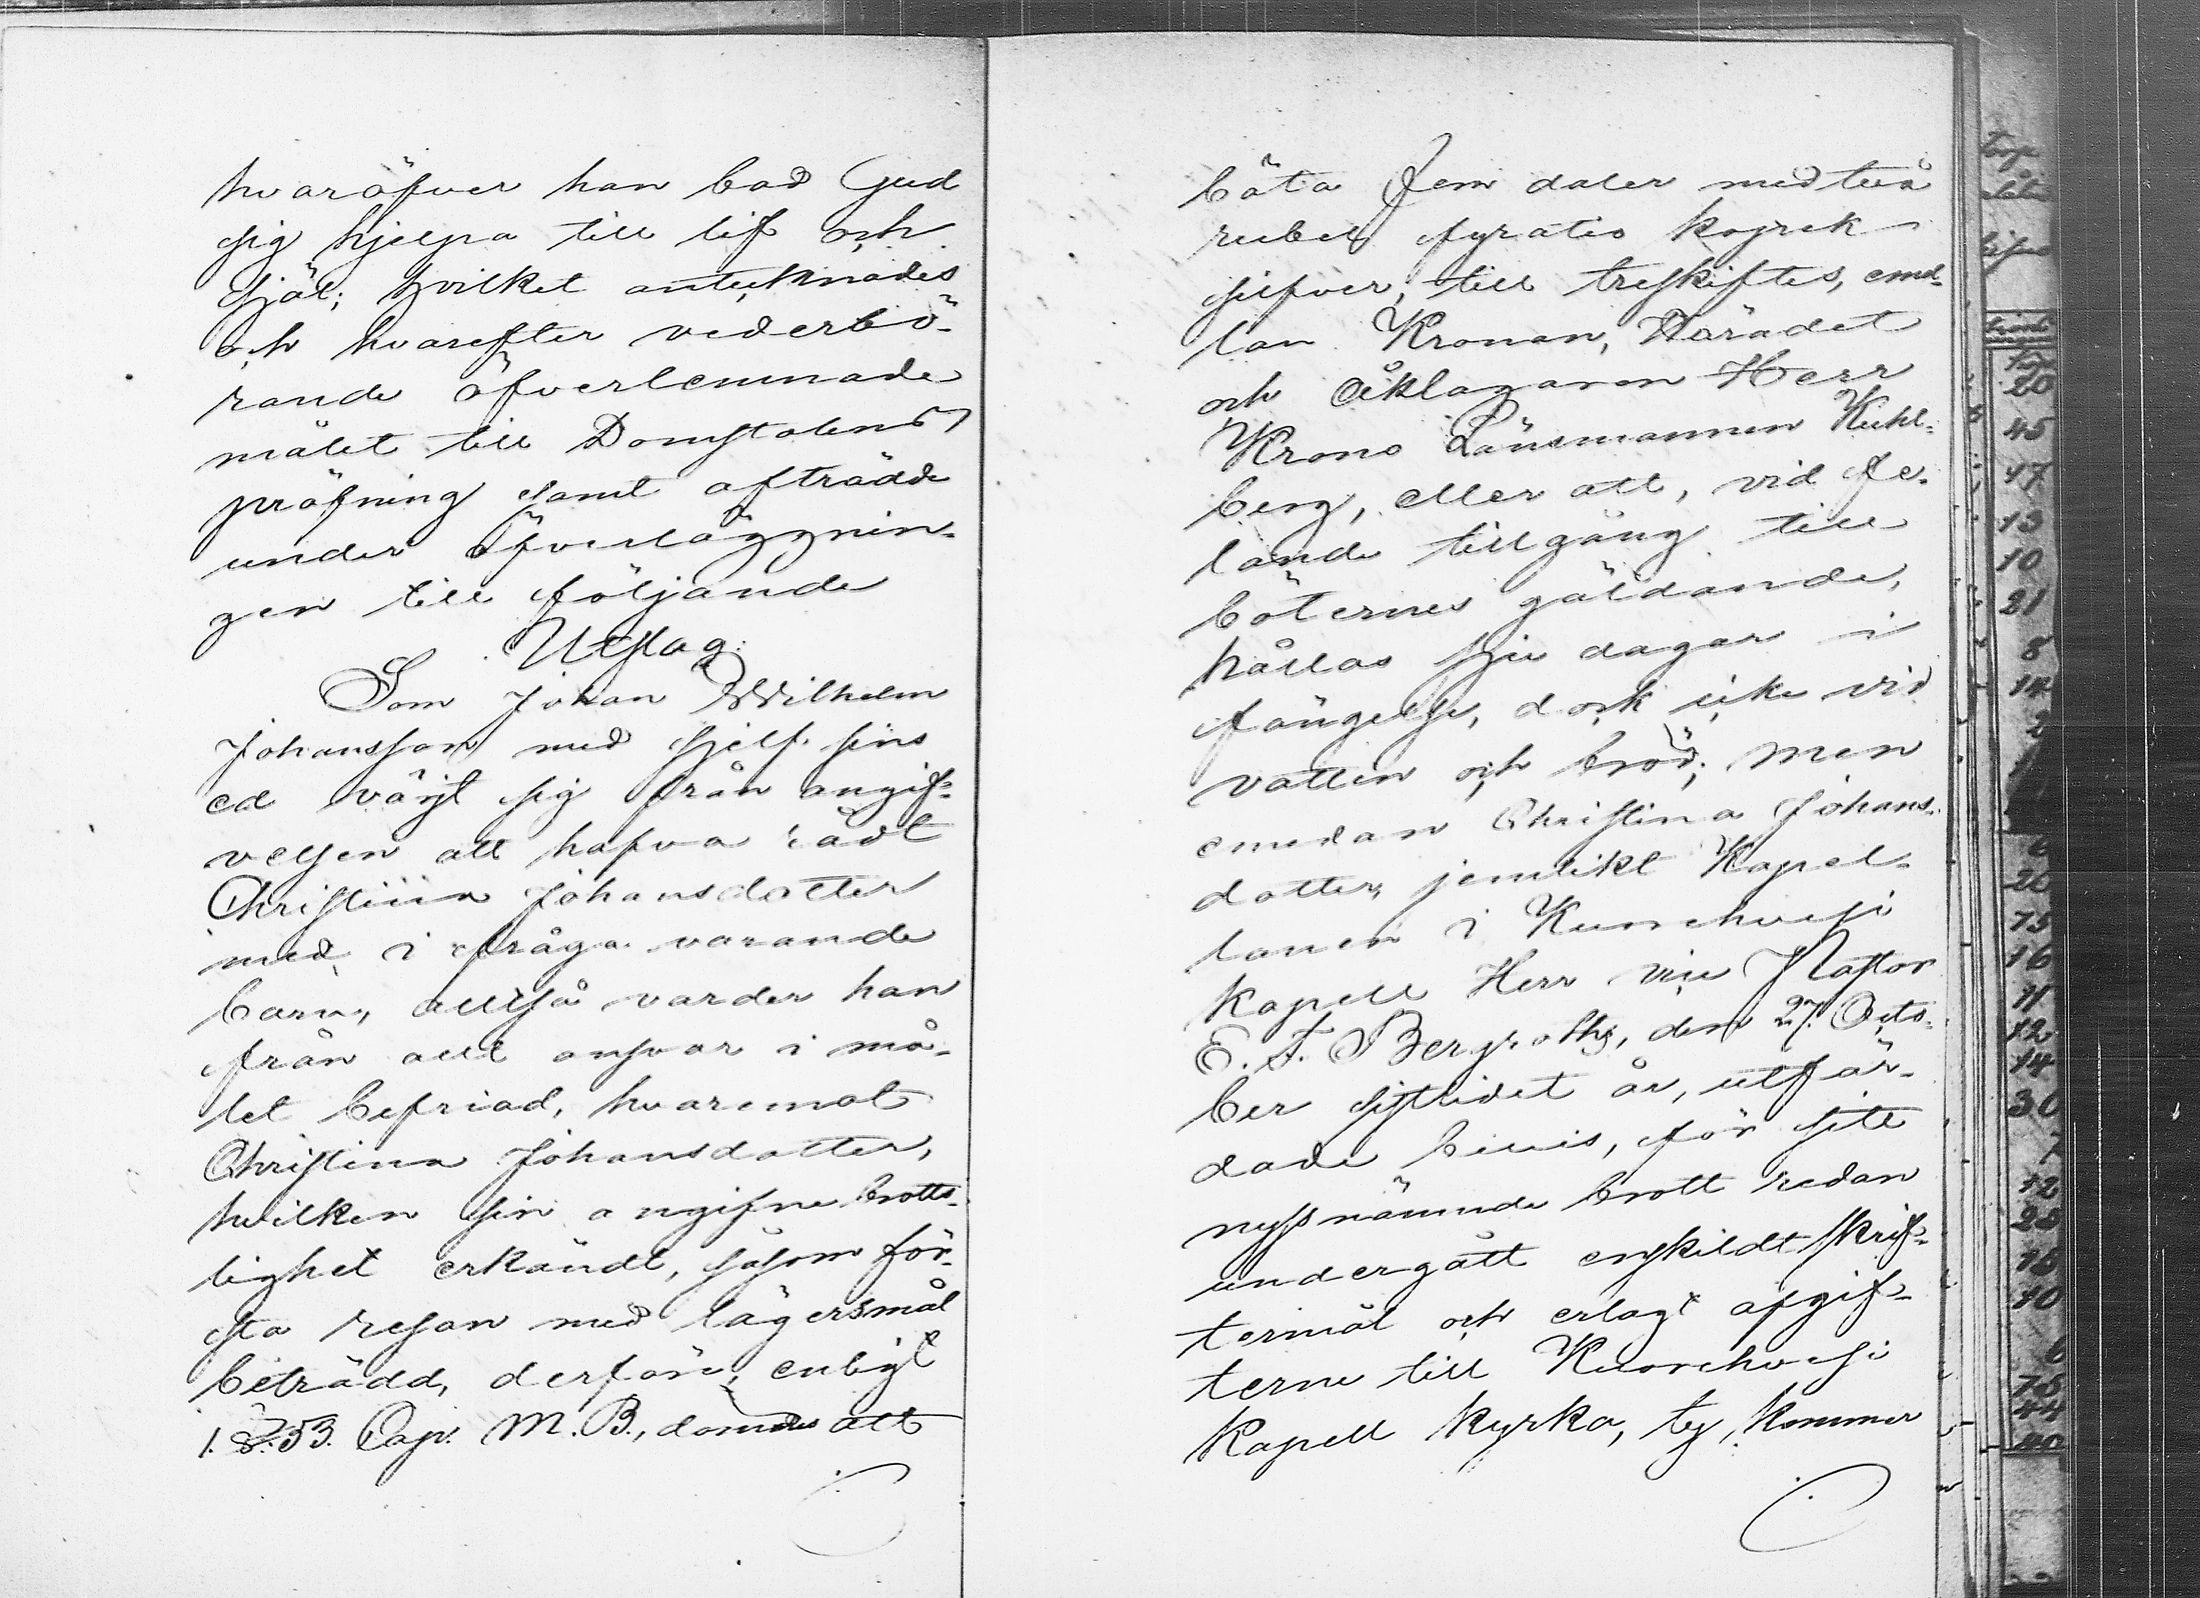 hvaröfver han bad Gud
sig hjelpa till lif och
själ; hvilket antecknades
och hvarefter vederbö-
rande öfverlemnade
målet till Domstolens
pröfning samt afträdde
under öfverläggnin-
gen till följande
Utslag:
Som Johan Wilhelm
Johansson med sjelf sins
ed värjt sig från angif-
velsen att hafva rådt
Christina Johansdotter
med i fråga varande
barn, alltså varder han
från allt ansvar i må-
let befriad, hvaremot
Christina Johansdotter,
hvilken sin angifne brotts-
lighet erkändt, såsom för-
sta resan med lägersmål
beträdd, derföre, enligt
1. §. 53. Cap. M. B., dömdes att
böta Fem daler med två
rubel fyratio kopek
silfver, till treskiftes, emel-
lan Kronan, Häradet
och Åklagaren Herr
Krono Länsmannen Kuhl-
berg, eller att, vid fe-
lande tillgång till
böternes gäldande,
hållas sju dagar i
fängelse, dock icke vid
vatten och bröd; men
emedan Christina Johans-
dotter, jemlikt Kapel-
lanen i Kuorehvesi
Kapell Herr vice Pastor
E. F. Bergroths, den 27. Octo-
ber sistlidet år, utfär-
dade bevis, för sitt
nyssnämnde brott redan
undergått enskildt skrif-
termål och erlagt afgif-
terne till Kuorehvesi
Kapell kyrka, ty kommer
20
45
17
13
10
21
8
14
2
20
75
16
11
12
14
30
7
12
28
18
10
6
78
44
40